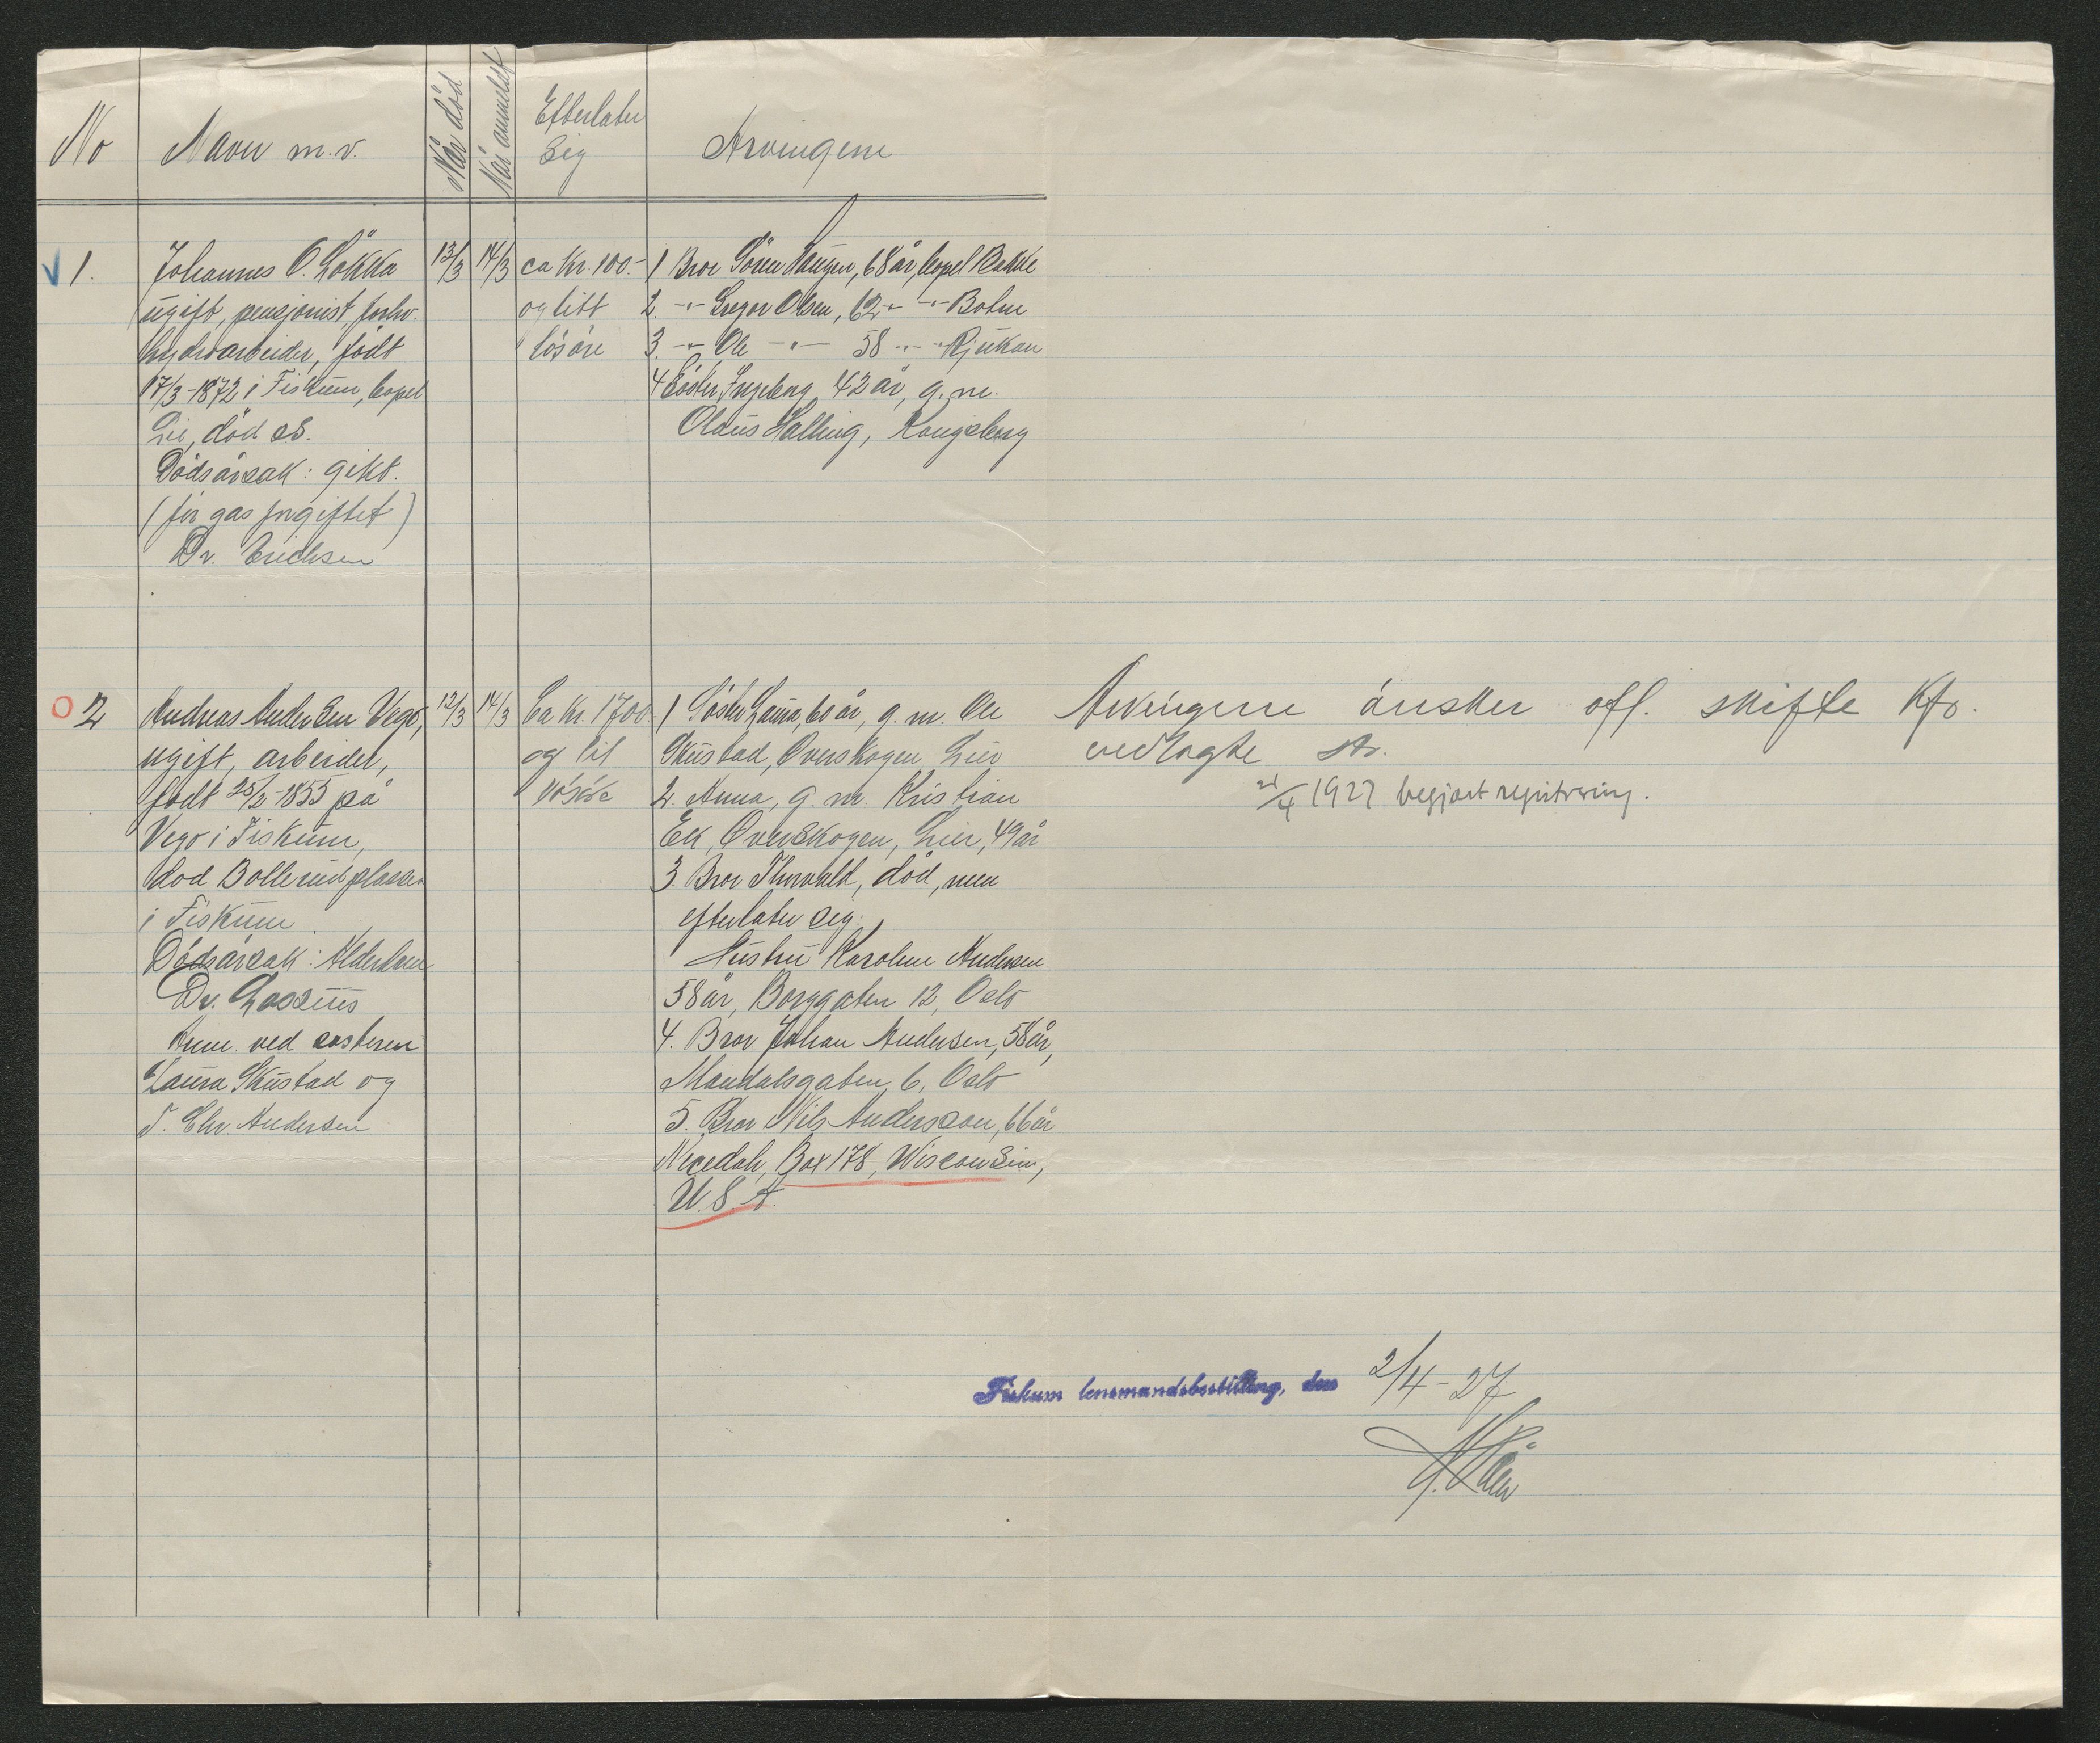 No
Navn m.v.
Når død
Når anmeldt
Efterlater
sig
Arvingene
1.
Johannes O. Løkka
ugift, pensjonist, forhv.
hydroarbeider, født
17/3-1872 i Fiskum, bopel
Lie, død os.
Dødsårsak: gikt.
(før gas forgiftet)
Dr. Erichsen
13/3
14/3
ca kr. 100.-
og litt
løsøre
1 Bror Sören Haugen, 68 år, bopel Bakke
2. -"- Gregor Olsen, 62 -"- -"- Botne
3. -"- Ole -"- 58 -"- -"- Rjukan
4 Søster Ingeborg 42 år, g.m.
Oldus Halling, Kongsberg
2
Andreas Andersen Vego,
ugift, arbeider,
født 25/2-1855 på
Vego i Fiskum,
død Bollerudplassen
i Fiskum.
Dødsårsak: Alderdom
Dr. Lassius
Anm. ved søsteren
Laura Skustad og
T. Chr. Andersen
12/3
14/3
Ca kr. 1700
og lit
løsøre
1 Søster Laura, 60 år, g.m. Ole
Skustad, Overskogen, Lier
2. Anna, g.m. Kristian
Ek, Overskogen, Lier, 49 år
3. Bror Thorvald, død, men
efterlater seg:
Hustru Karoline Andersen
58 år, Borggaten 12, Oslo
4. Bror Johan Andersen, 58 år,
Mandalsgaten 6, Oslo
5. Bror Nils Andersson, 66 år
Necedah, Box 178, Wisconsin,
U.S.A.
Arvingene ønsker off. skifte kfr.
vedlagte
1927 begjært registrering.
Fiskum lensmandsbestilling, den 2/4-27